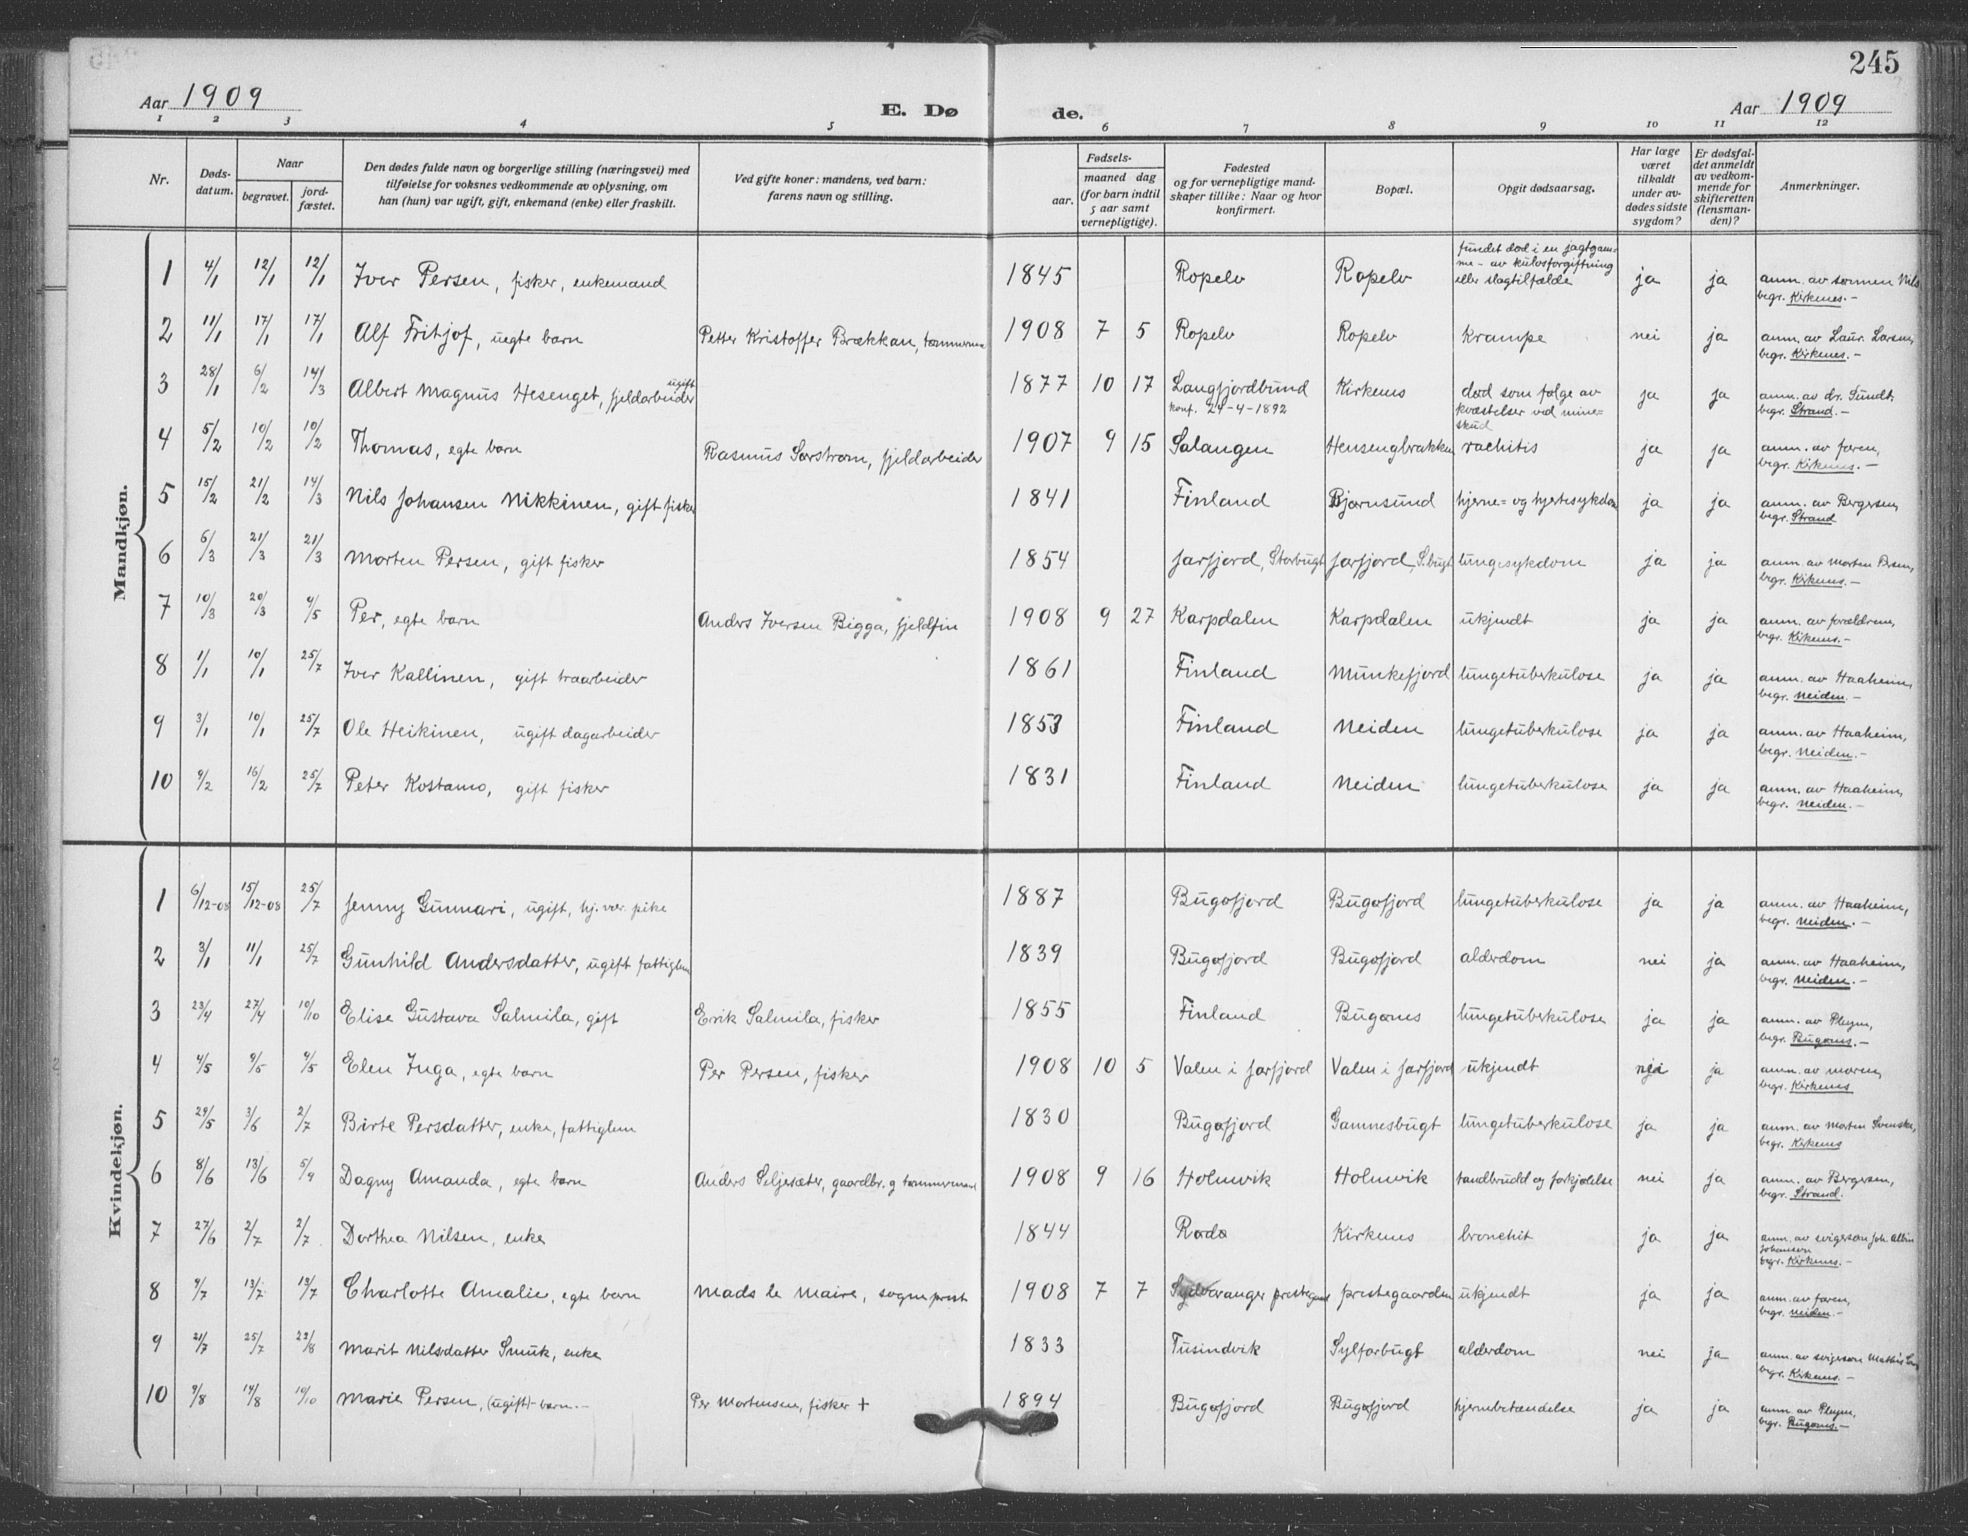 245
Aar 1909 E. Døde. Aar 1909
1 2 3 4 5 6 7 8 9 10 11 12
Nr. Dødsdatum. Naar begravet. jordfæstet. Den dødes fulde navn og borgerlige stilling (næringsvei) med tilføielse for voksnes vedkommende av oplysning, om han (hun) var ugift, gift, enkemand (enke) eller fraskilt. Ved gifte koner: mandens, ved barn: farens navn og stilling. Fødsels- aar. maaned dag (for barn indtil 5 aar samt vernepligtige). Fødested og for vernepligtige mandskaper tillike: Naar og hvor konfirmert. Bopæl. Opgit dødsaarsag. Har læge været tilkaldt under avdødes sidste sygdom? Er dødsfaldet anmeldt av vedkommende for skifteretten (lensmanden)? Anmerkninger.
Mandkjøn.
1 4/1 12/1 12/1 Iver Persen, fisker, enkemand 1845 Ropelv Ropelv fundet død i en jagtgamme - av kulosforgiftning eller slagtilfælde ja ja anm. av sønnen Nils begr. Kirkenes.-
2 11/1 17/1 17/1 Alf Fritjof, uegte barn Petter Kristoffer Brækkan, tømmerman 1908 7 5 Ropelv Ropelv krampe nei ja anm. av Laur. Larsen, begr. Kirkenes.-
3 28/1 6/2 14/3 Albert Magnus Hesenget, fjeldarbeider ugift 1877 10 17 Langfjordbund konf. 24-4-1892 Kirkenes død som følge av kvæstelser ved mineskud ja ja anm. av dr. Sundt, begr. Strand.-
4 5/2 10/2 10/2 Thomas, egte barn Rasmus Sørstrøm, fjeldarbeider 1907 9 15 Salangen Hensengbrakken rachitis ja ja anm. av faren, begr. Kirkenes.-
5 15/2 21/2 14/3 Nils Johansen Nikkinen, gift fisker 1841 Finland Bjørnsund hjerne- og hjertesykdom ja ja anm. av Bergersen, begr. Strand
6 6/3 21/3 21/3 Morten Persen, gift fisker 1854 Jarfjord, Storbugt Jarfjord, S.bugt lungesykdom ja ja anm. av Morten Persen, begr. Kirkenes.-
7 10/3 20/3 9/5 Per, egte barn Anders Iversen Bigga, fjeldfin 1908 9 27 Karpdalen Karpdalen ukjendt ja ja anm. av forældrene, begr. Kirkenes.-
8 1/1 10/1 25/7 Iver Kallinen, gift traarbeider 1861 Finland Munkefjord lungetuberkulose ja ja anm. av Haaheim, begr. Neiden.-
9 3/1 10/1 25/7 Ole Heikinen, ugift dagarbeider 1853 Finland Neiden lungetuberkulose ja ja anm. av Haaheim, begr. Neiden.-
10 9/2 16/2 25/7 Peter Kostamo, gift fisker 1831 Finland Neiden lungetuberkulose ja ja anm. av Haaheim, begr. Neiden.-
Kvindekjøn.
1 6/12-08 15/12-08 25/7 Jenny Gunnari, ugift, hj.vær. pike 1887 Bugøfjord Bugøfjord lungetuberkulose ja ja anm. av Haaheim, begr. Neiden.-
2 3/1 11/1 25/7 Gunhild Andersdatter, ugift fattiglem 1839 Bugøfjord Bugøfjord alderdom nei ja anm. av Haaheim, begr. Neiden.-
3 23/4 27/4 10/10 Elise Gustava Salmila, gift Erik Salmila, fisker 1855 Finland Bugønes lungetuberkulose ja ja anm. av Pleym, begr. Bugønes.-
4 4/5 9/5 9/5 Elen Inga, egte barn Per Persen, fisker 1908 10 5 Valen i Jarfjord Valen i Jarfjord ukjendt nei ja anm. av moren, begr. Kirkenes
5 29/5 3/6 2/7 Birte Persdatter, enke, fattiglem 1830 Bugøfjord Gamnesbugt lungetuberkulose ja ja anm. av Morten Svenske, begr. Kirkenes
6 8/6 13/6 5/9 Dagny Amanda, egte barn Anders Seljesæter, gaardbr. og tømmermand 1908 9 16 Holmvik Holmvik tandbrudd og forkjølelse nei ja anm. av Bergersen, begr. Strand.
7 27/6 2/7 2/7 Dorthea Nilsen, enke 1844 Rødø Kirkenes bronchit ja ja anm. av svigersøn Joh. Albin Johansen begr. Kirkenes.-
8 9/7 13/7 13/7 Charlotte Amalie, egte barn Mads le Maire, sogneprest 1908 7 7 Sydvaranger prestegaard prestegaarden ukjendt ja ja anm. av faren, begr. Neiden.-
9 21/7 25/7 22/8 Marit Nilsdatter Smuk, enke 1833 Tusindvik Sylforbugt alderdom nei ja anm. av svigersøn Mathis begr. Kirkenes.-
10 9/8 14/8 10/10 Marie Persen, (ugift) - barn.- Per Mortensen, fisker + 1894 Bugøfjord Bugøfjord hjernebetændelse ja ja anm. av Pleym, begr. Bugønes.-